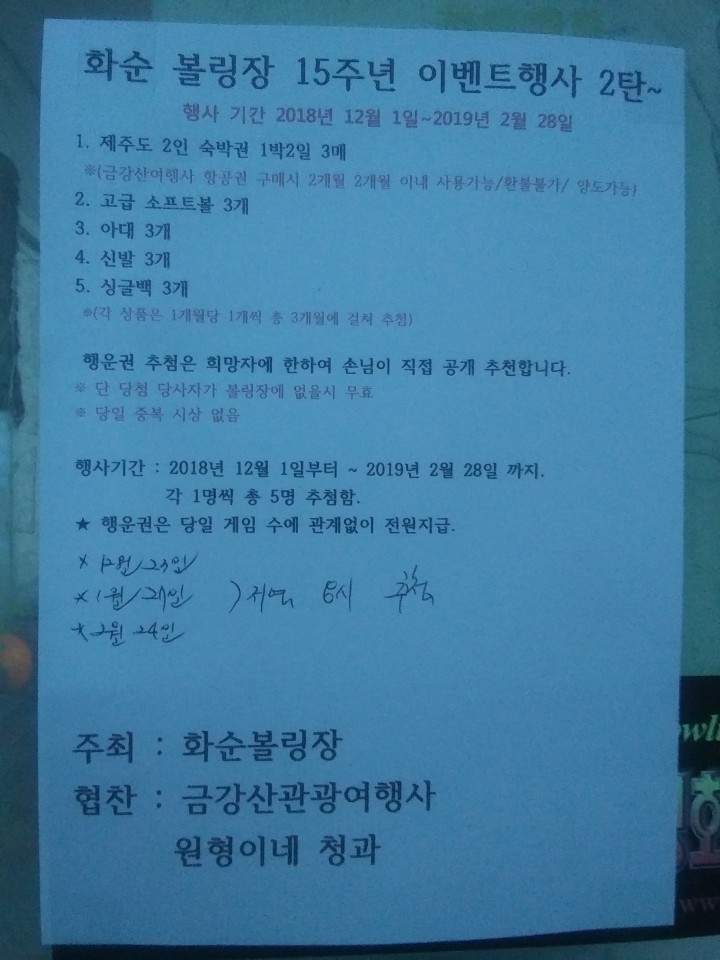 화순 볼링장 15주년 이벤트행사 2탄~
행사 기간 2018년 12월 1일~2019년 2월 28일
1. 제주도 2인 숙박권 1박2일 3매
※(금강산여행사 항공권 구매시 2개월 2개월 이내 사용가능/환불불가/ 양도가능)
2. 고급 소프트볼 3개
3. 아대 3개
4. 신발 3개
5. 싱글백 3개
※(각 상품은 1개월당 1개씩 총 3개월에 걸쳐 추첨)
행운권 추첨은 희망자에 한하여 손님이 직접 공개 추천합니다.
※ 단 당첨 당사자가 볼링장에 없을시 무효
※ 당일 중복 시상 없음
행사기간 : 2018년 12월 1일부터 ~ 2019년 2월 28일 까지.
각 1명씩 총 5명 추첨함.
★ 행운권은 당일 게임 수에 관계없이 전원지급.
* 12월/23일
* 1월/27일 ) 저녁 6시 추첨
* 2월 24일
주최 : 화순볼링장
협찬 : 금강산관광여행사
원형이네 청과
www